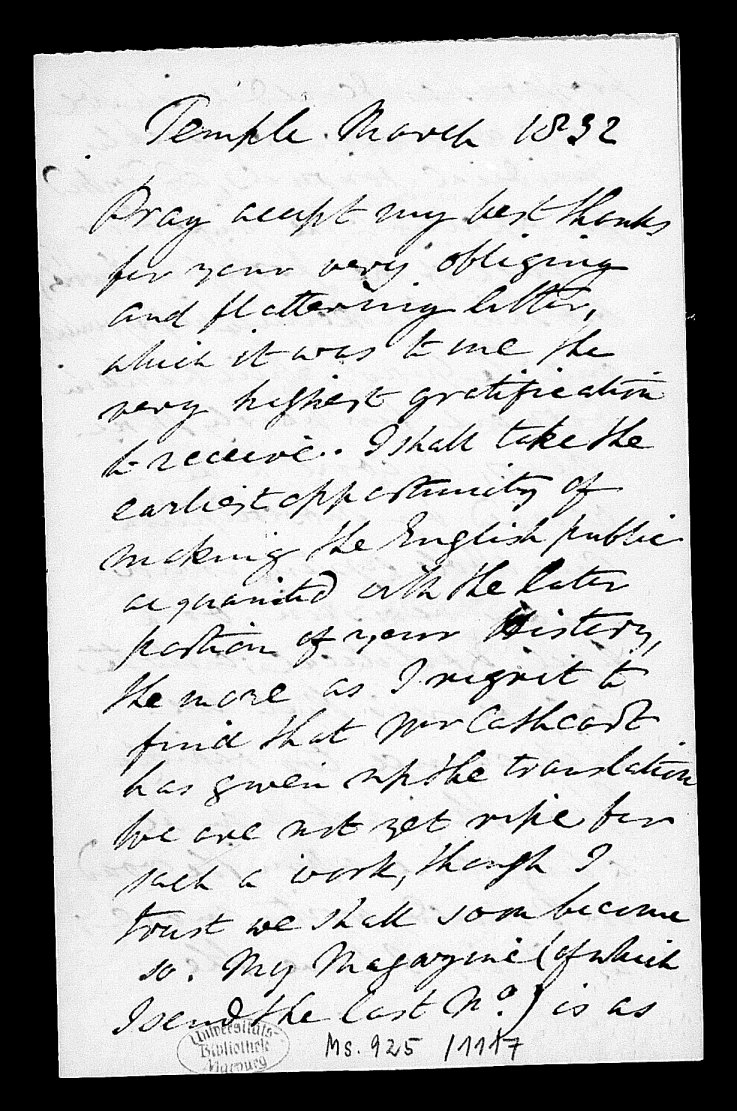 Temple. March 1832
Pray accept my best thanks
for your very obliging
and flattering letter,
which it was to me the
very highest gratification
to receive. I shall take the
earliest opportunity of
making the English public
acquainted with the later
portion of your History,
the more as I regret to
find that Mr Cathcart
has given up the translation
We are not yet ripe for
such a work, though I
trust we shall soon become
so. My Magazine (of which
I send the last No.) is as
Universitäts-
Bibliothek
Marburg
Ms. 925 /1117